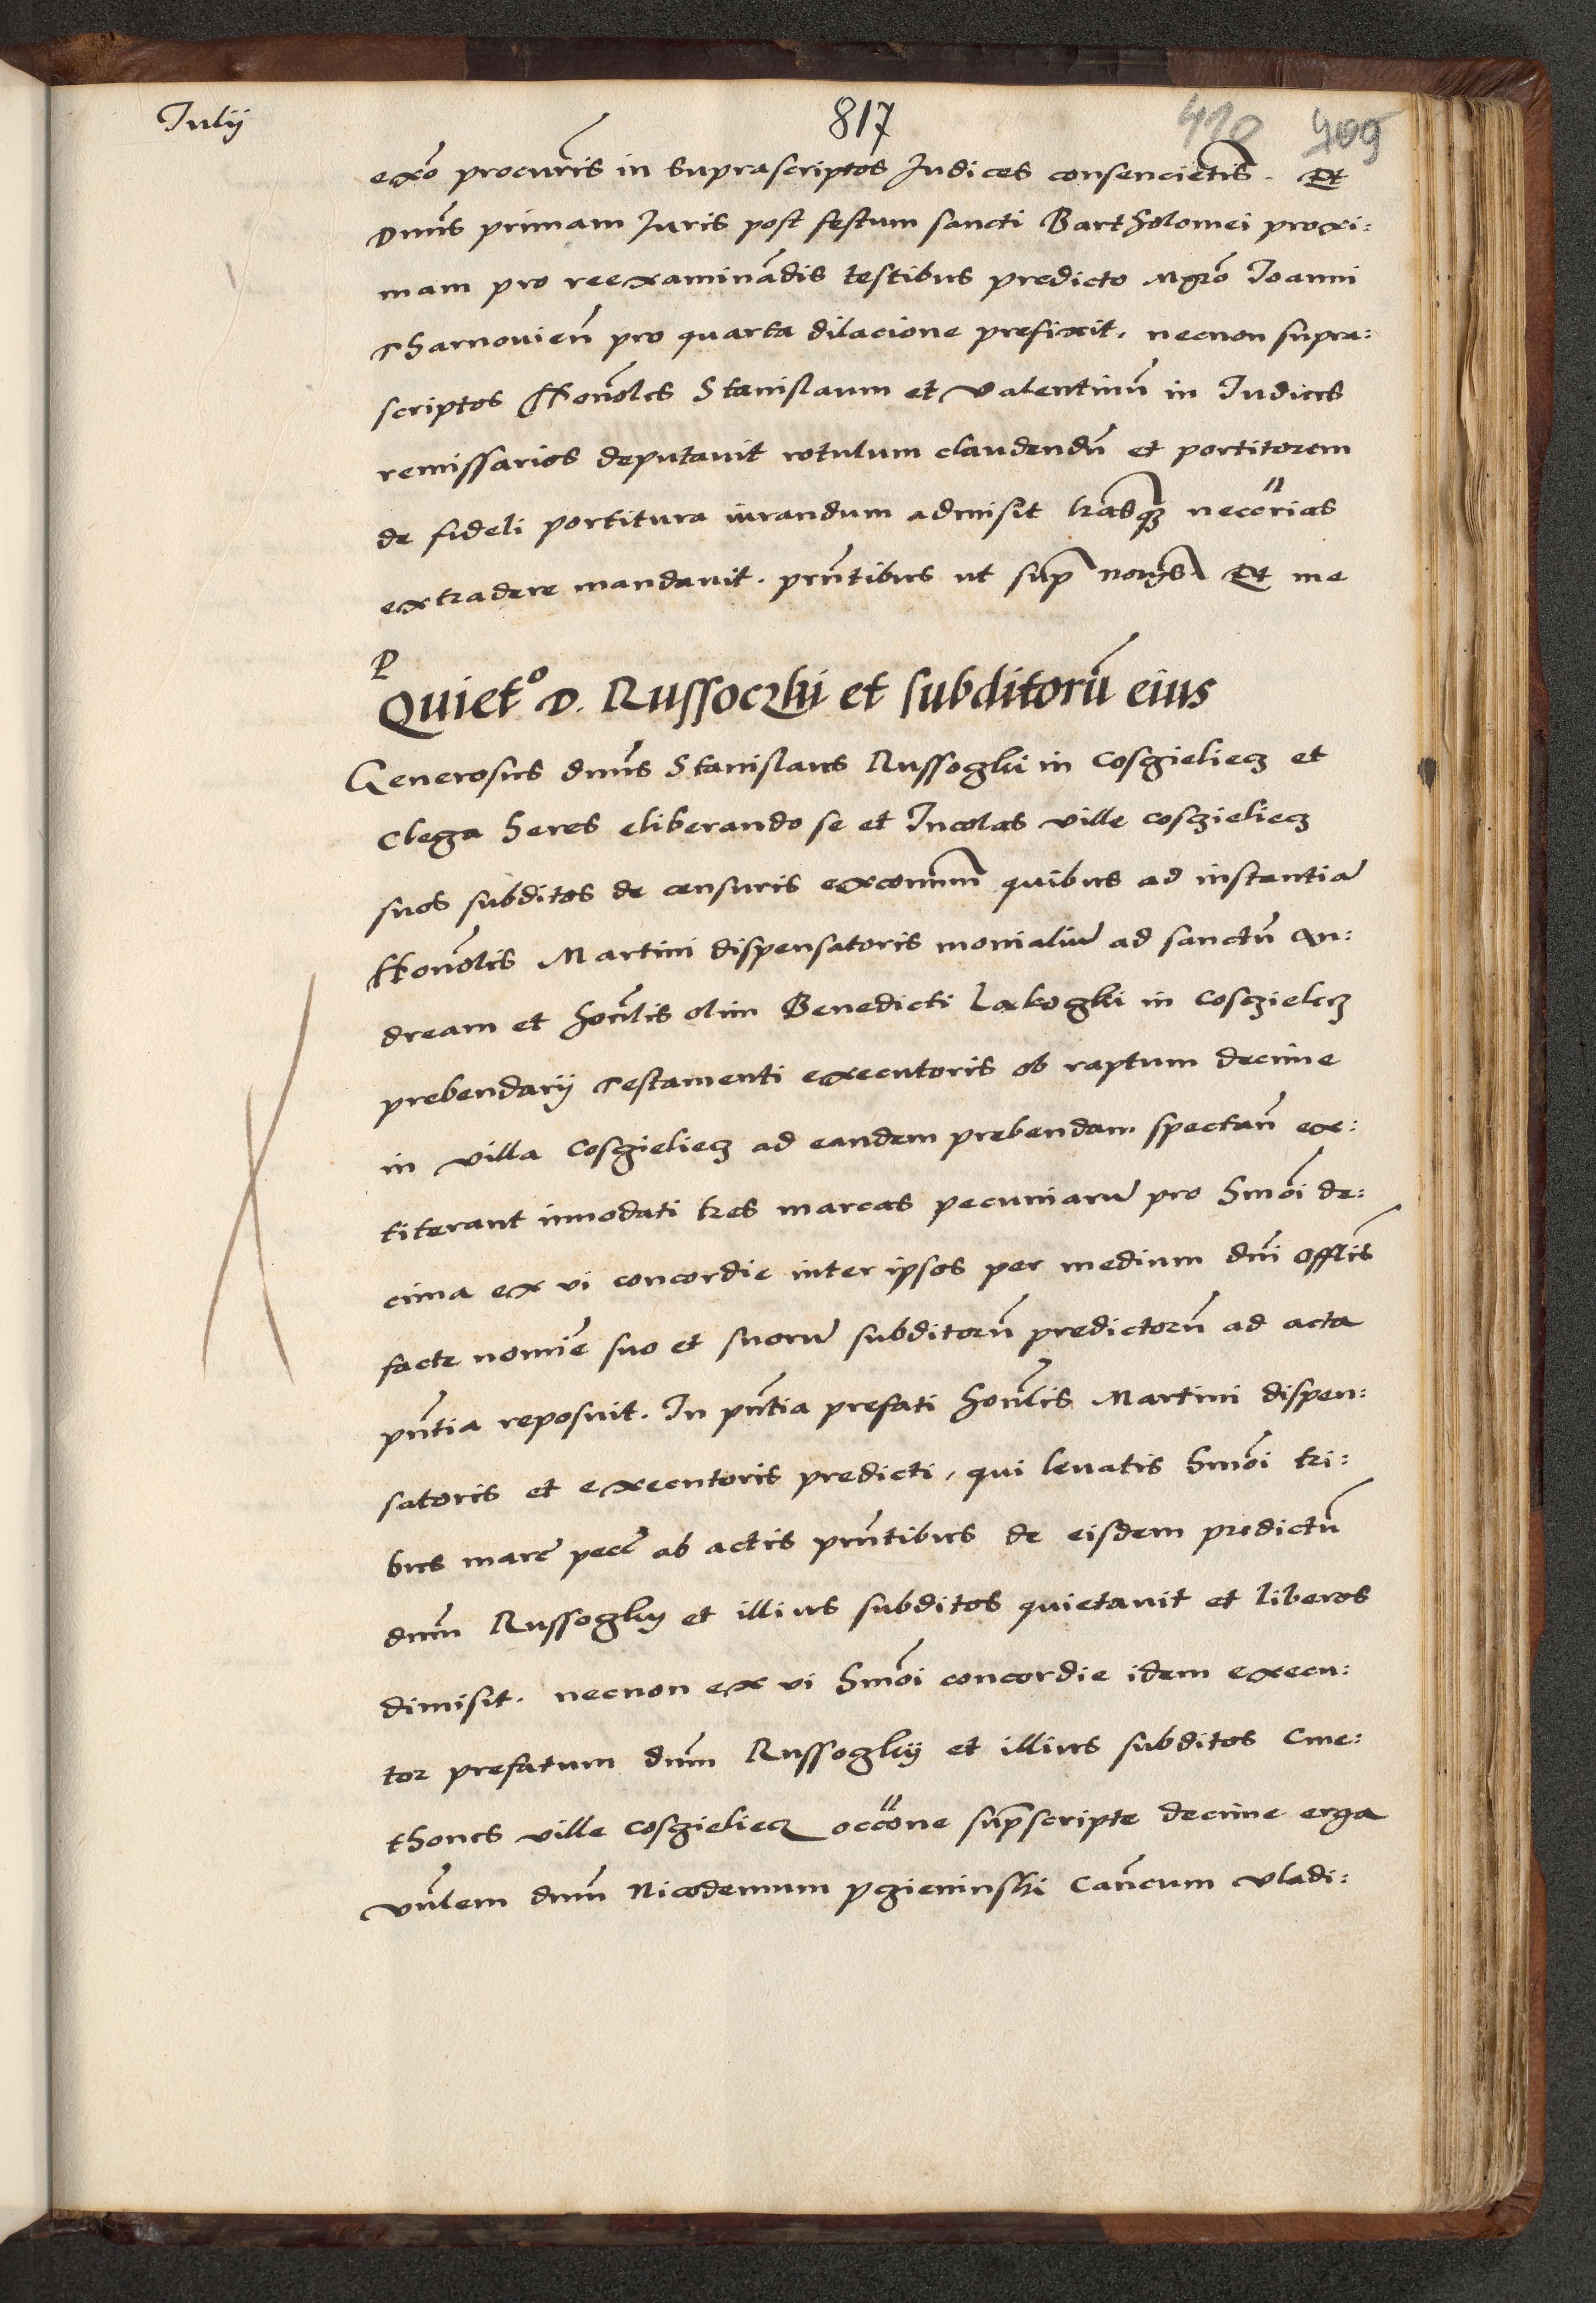 Julij
817
410 409
exõ procur̃is in suprascriptos Judices consencieñtis. Et
Dnũs primam Juris post festum sancti Bartholomei proxi:
mam pro reexaminãdis testibus predicto Mgr̃o Joanni
Tharnovieñ pro quarta dilacione prefixit, necnon supra:
scriptos Honõles Stanislaum et Valentinũ in Judices
remissarios deputavit rotulum claudendũ et portitorem
de fideli portitura iurandum admisit l̃rasqȝ necc̃rias
extradere mandavit. prñtibus ut sup̃ Et me
P
Quiet° D. Russoczki et subditorũ eius
Generosus dnũs Stanislaus Russogski in Cosczieliecz et
Clega heres eliberando se et Incolas ville cosczieliecz
suos subditos de censuris excomuñ quibus ad instantiã
Honõlis Martini dispensatoris monialiũ ad sanctũ An:
dream et hoñlis olim Benedicti Lakogski in Cosczielecz
prebendarij Testamenti executoris ob raptum decime
in villa Cosczieliecz ad eandem prebendam spectañ ex:
titerant innodati tres marcas pecuniarũ pro hmõi de:
cima ex vi concordie inter ipsos per medium dñi Offlĩs
facte nomĩe suo et suorũ subditorũ predictorũ ad acta
pñtia reposuit. In pñtia prefati hoñlis Martini dispen:
satoris et executoris predicti, qui levatis hmõi tri:
bus marc̃ pecc̃ ab actis prñtibus de eisdem predictũ
dnũm Russogsky et illius subditos quietavit et liberos
dimisit. necnon ex vi hmõi concordie idem execu:
tor prefatum dnũm Russogskij et illius subditos Cme:
thones ville cosczieliecz occõne sup̃scripte decime erga
vñlem dnũm Nicodemum pgieninski Cañcum Vladi: